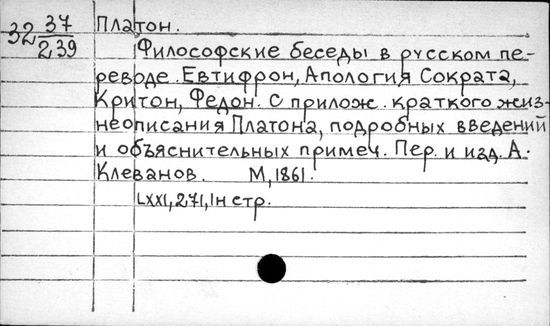 32 37/2,39
Платон.
Философские беседы в русском пе-
реводе. Евтифрон, Апология Сократа,
Критон, Федон. С прилож. краткого жиз-
неописания Платона, подробных введений
и объяснительных примеч. Пер. и изд. А.
Клеванов. М, 1861.
LXXI, 271, Iн стр.